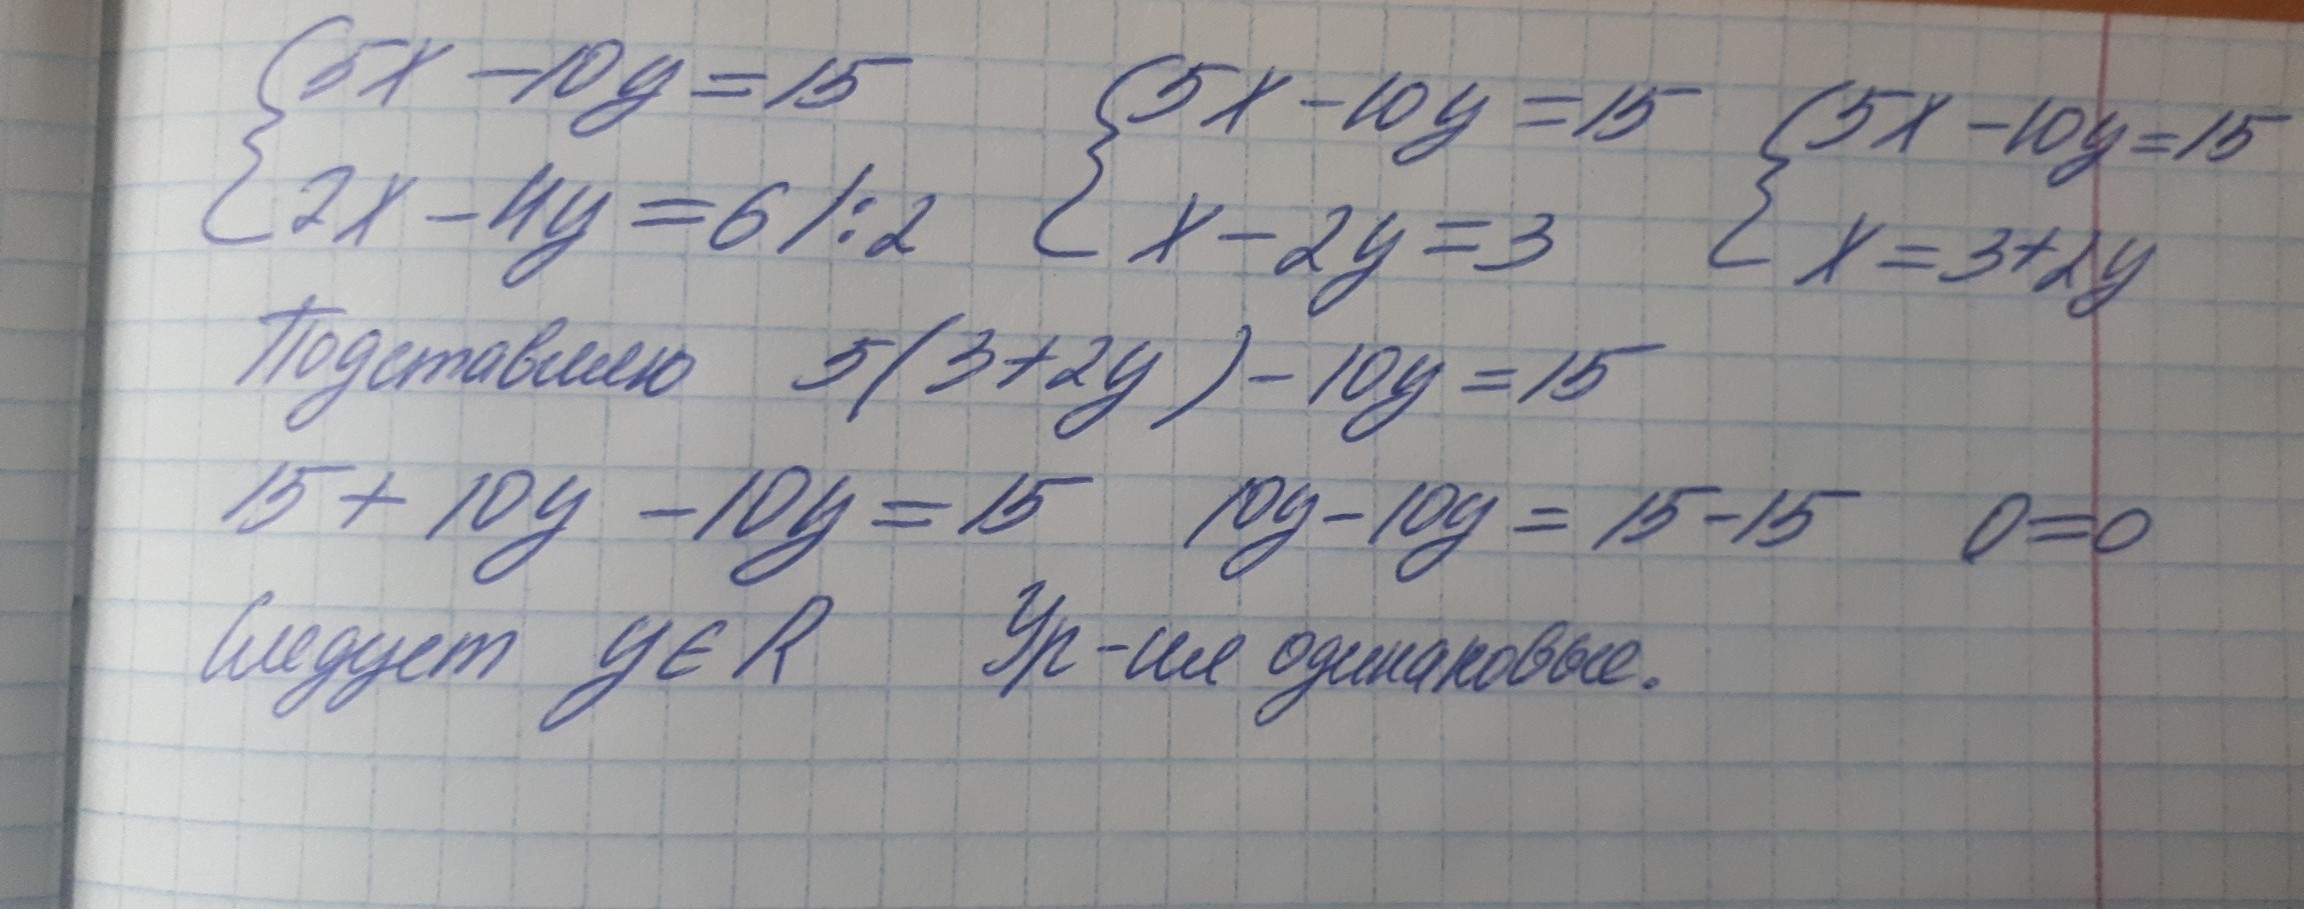 {5x - 10y = 15 {5x - 10y = 15 {5x - 10y = 15
2x - 4y = 6 /:2 x - 2y = 3 x = 3 + 2y
Подставляю 5(3 + 2y) - 10y = 15
15 + 10y - 10y = 15 10y - 10y = 15 - 15 0 = 0
Следует y ∈ R Ур-ия одинаковые.